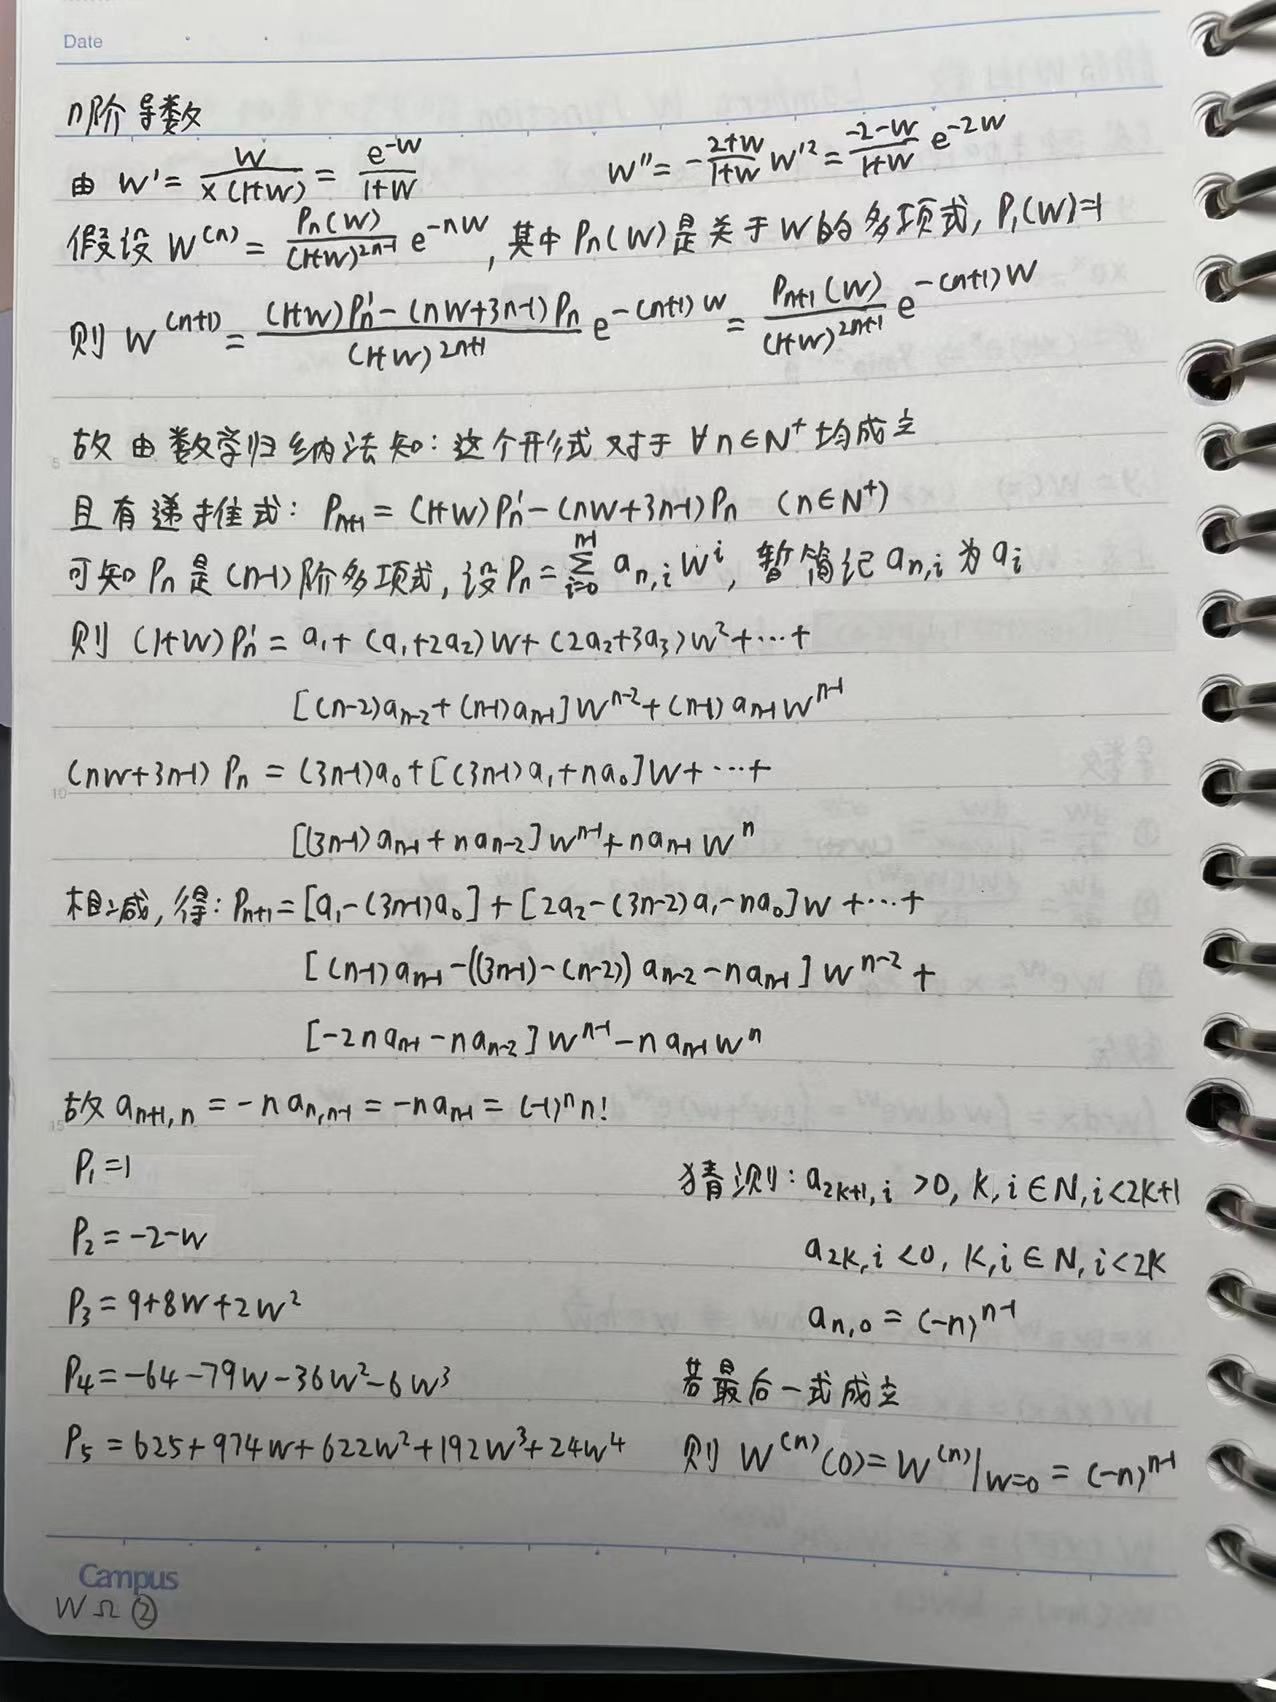 Date
n阶导数
由 W' = W/(x(1+W)) = e^{-W}/(1+W)    W'' = -(2+W)/(1+W) W'^2 = (-2-W)/(1+W) e^{-2W}
假设 W^{(n)} = P_n(W)/(1+W)^{2n-1} e^{-nW}, 其中 P_n(W) 是关于 W 的多项式, P_1(W)=1
则 W^{(n+1)} = ((1+W)P_n' - (nW+3n-1)P_n)/(1+W)^{2n+1} e^{-(n+1)W} = P_{n+1}(W)/(1+W)^{2n+1} e^{-(n+1)W}
故由数学归纳法知: 这个形式对于 ∀n∈N^+ 均成立
5
且有递推式: P_{n+1} = (1+W)P_n' - (nW+3n-1)P_n (n∈N^+)
可知 P_n 是 (n-1) 阶多项式, 设 P_n = ∑_{i=0}^{n-1} a_{n,i} W^i, 暂简记 a_{n,i} 为 a_i
则 (1+W)P_n' = a_1 + (a_1+2a_2)W + (2a_2+3a_3)W^2 + ⋯ +
[(n-2)a_{n-2} + (n-1)a_{n-1}]W^{n-2} + (n-1)a_{n-1}W^{n-1}
(nW+3n-1) P_n = (3n-1)a_0 + [(3n-1)a_1 + na_0]W + ⋯ +
10
[(3n-1)a_{n-1} + na_{n-2}]W^{n-1} + na_{n-1}W^n
相减, 得: P_{n+1} = [a_1-(3n-1)a_0] + [2a_2-(3n-2)a_1-na_0]W + ⋯ +
[(n-1)a_{n-1} - ((3n-1)-(n-2))a_{n-2} - na_{n-1}]W^{n-2} +
[-2na_{n-1} - na_{n-2}]W^{n-1} - na_{n-1}W^n
故 a_{n+1,n} = -na_{n,n-1} = -na_{n-1} = (-1)^n n!
15
P_1 = 1    猜测: a_{2k+1,i} > 0, k,i∈N, i<2k+1
P_2 = -2-W    a_{2k,i} < 0, k,i∈N, i<2k
P_3 = 9+8W+2W^2    a_{n,0} = (-n)^{n-1}
P_4 = -64-79W-36W^2-6W^3    若最后一式成立
P_5 = 625+974W+622W^2+192W^3+24W^4    则 W^{(n)}(0) = W^{(n)}|_{W=0} = (-n)^{n-1}
Campus
WΩ ②